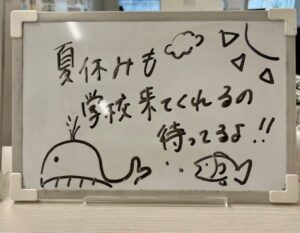 夏休みも
学校来てくれるの
待ってるよ!!